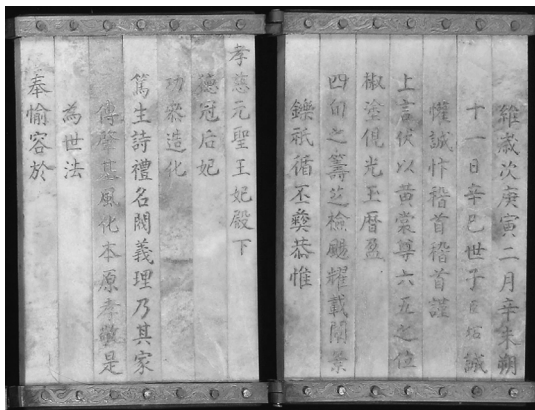 維歲次庚寅二月辛未朔
十一日辛巳世子臣坧誠
懽誠忭稽首稽首謹
上言伏以黃裳尊六五之位
椒塗俔光玉曆盈
四旬之籌芝檢颺耀載景
鑠祇循丕彝恭惟
孝慈元聖王妃殿下
德冠后妃
功參造化
篤生詩禮名閥義理乃其家
傳肇基風化本原孝敬是
為世法
奉愉容於